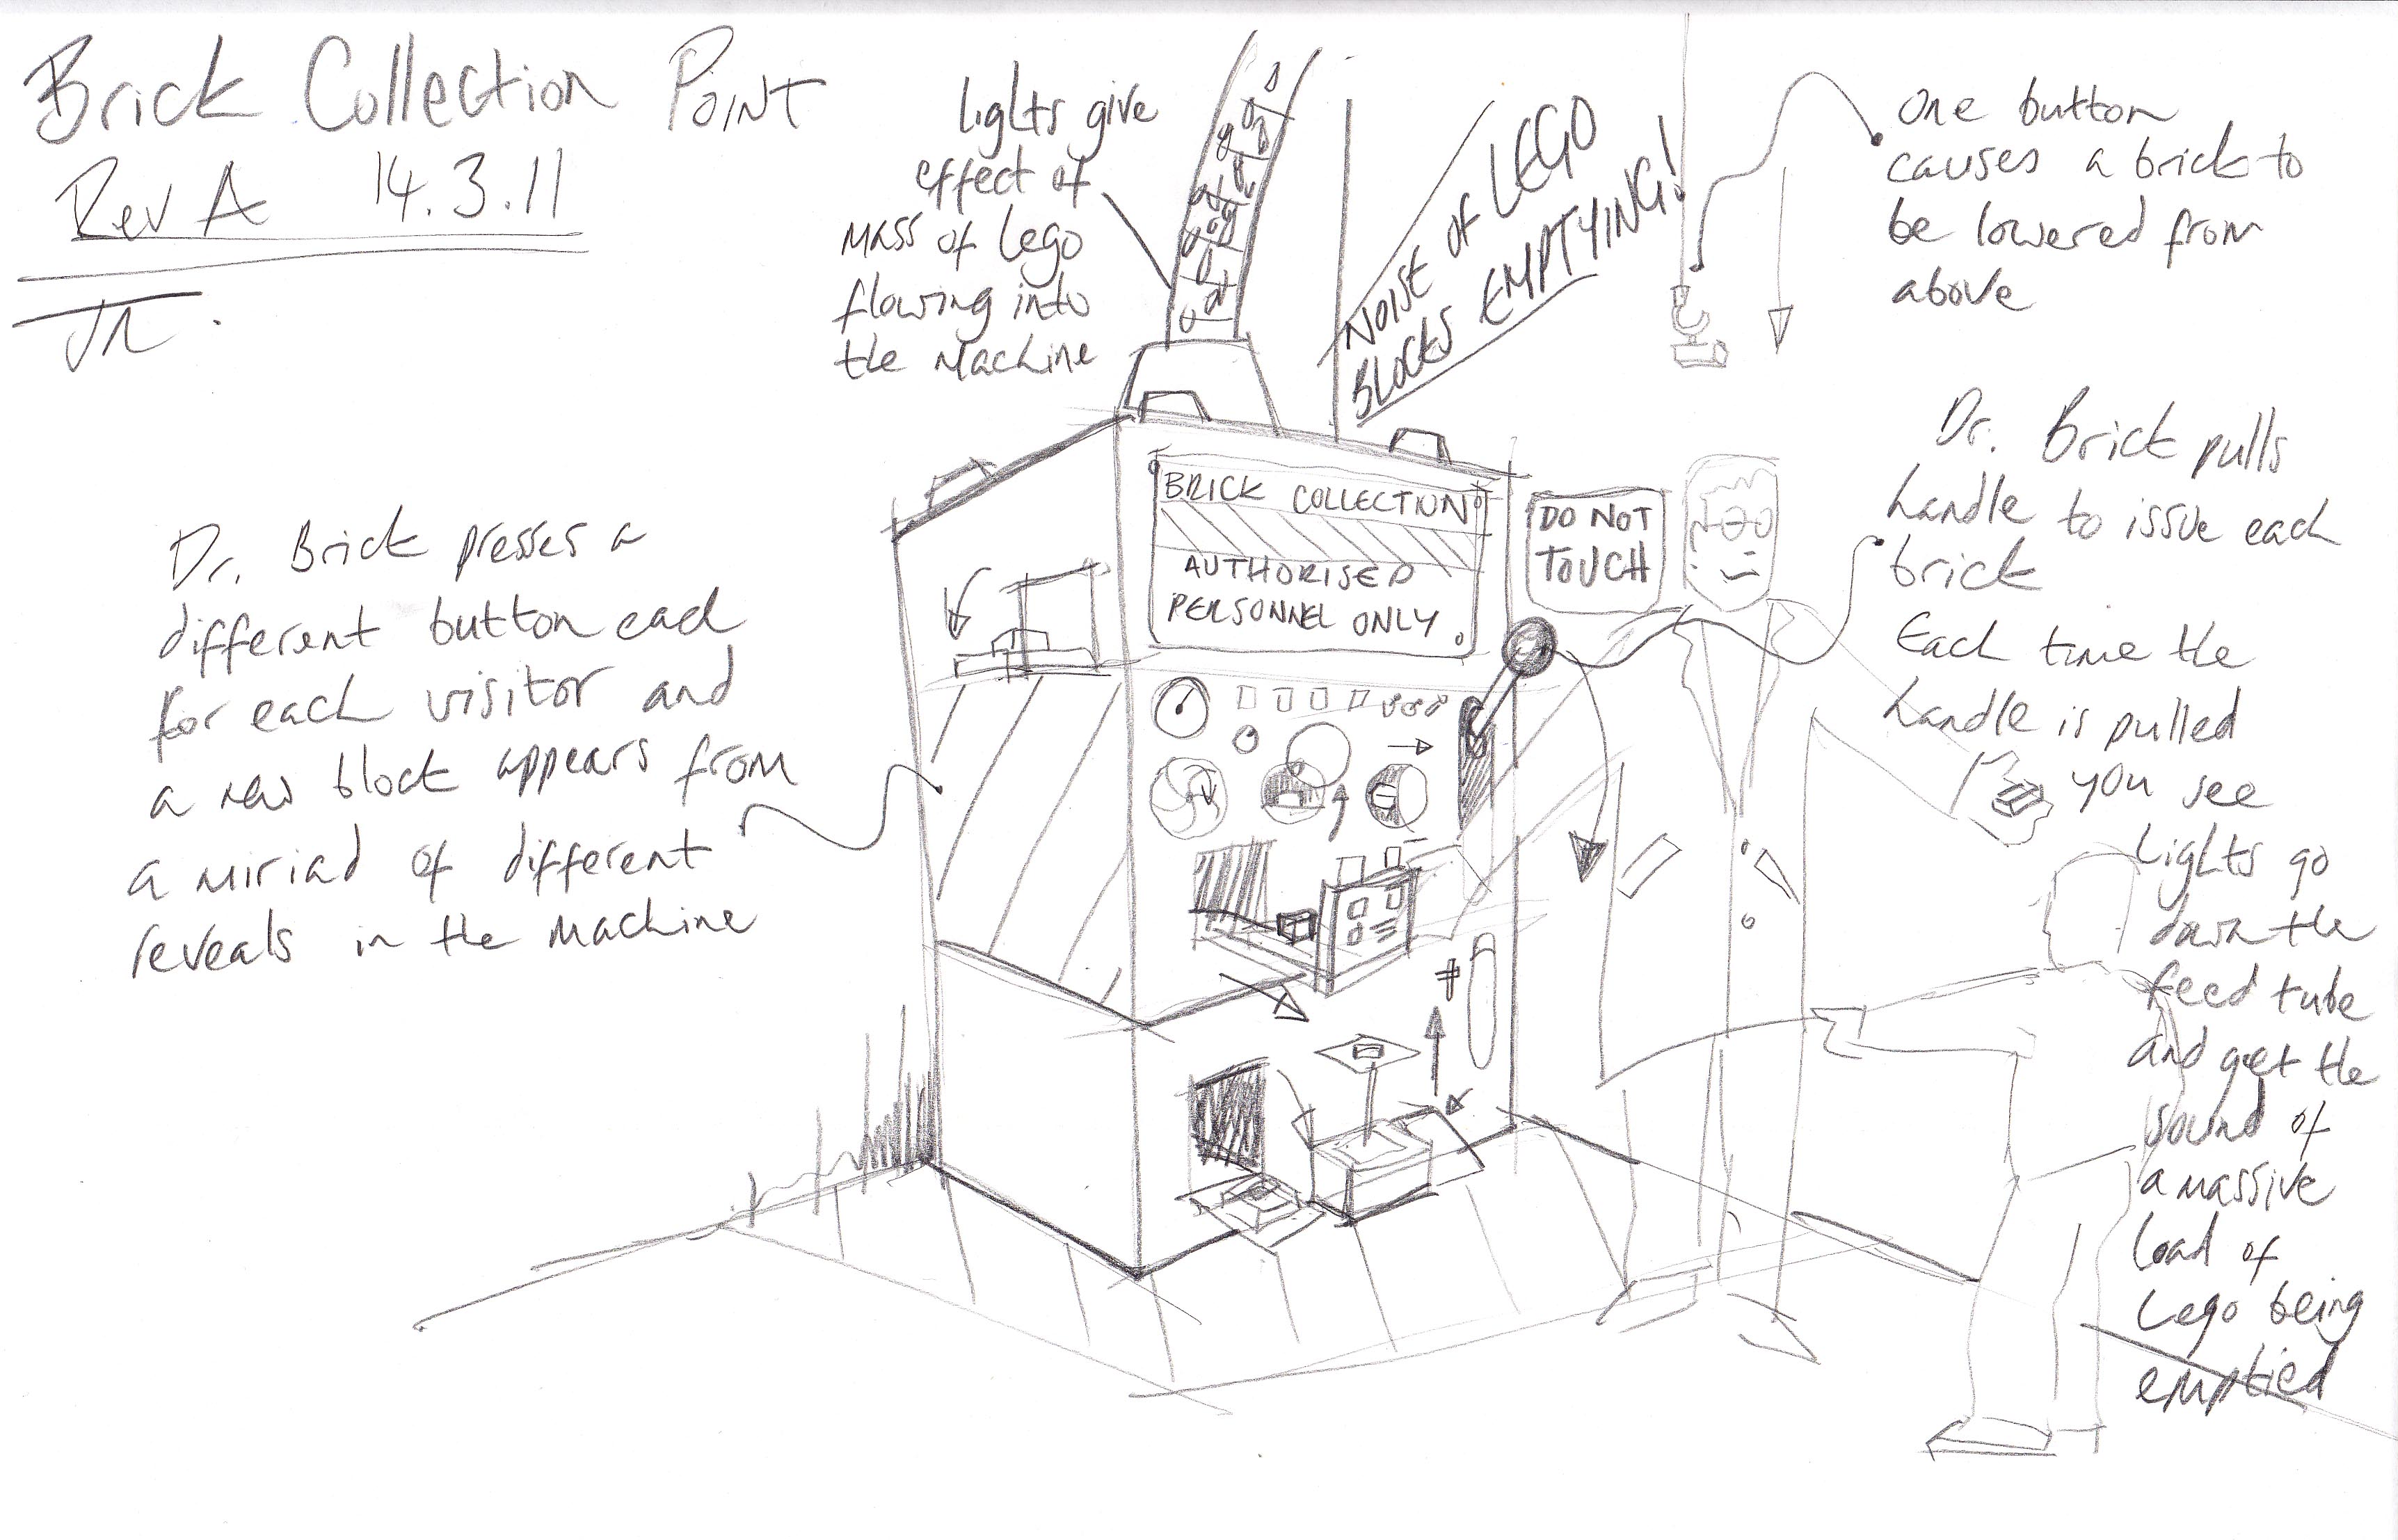 Brick Collection Point
Rev A 14.3.11
JR.
Lights give
effect of
mass of Lego
flowing into
the machine
NOISE OF LEGO
BLOCKS EMPTYING!
One button
causes a brick to
be lowered from
above
Dr. Brick presses a
different button each
for each visitor and
a new block appears from
a miriad of different
reveals in the machine
BRICK COLLECTION
AUTHORISED
PERSONNEL ONLY
DO NOT
TOUCH
Dr. Brick pulls
handle to issue each
brick
Each time the
handle is pulled
you see
lights go
down the
feed tube
and get the
sound of
a massive
load of
Lego being
emptied